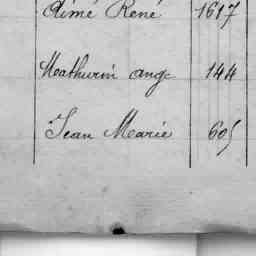 Aimé René 1617
Mathurin ange 144
Jean Marie 605